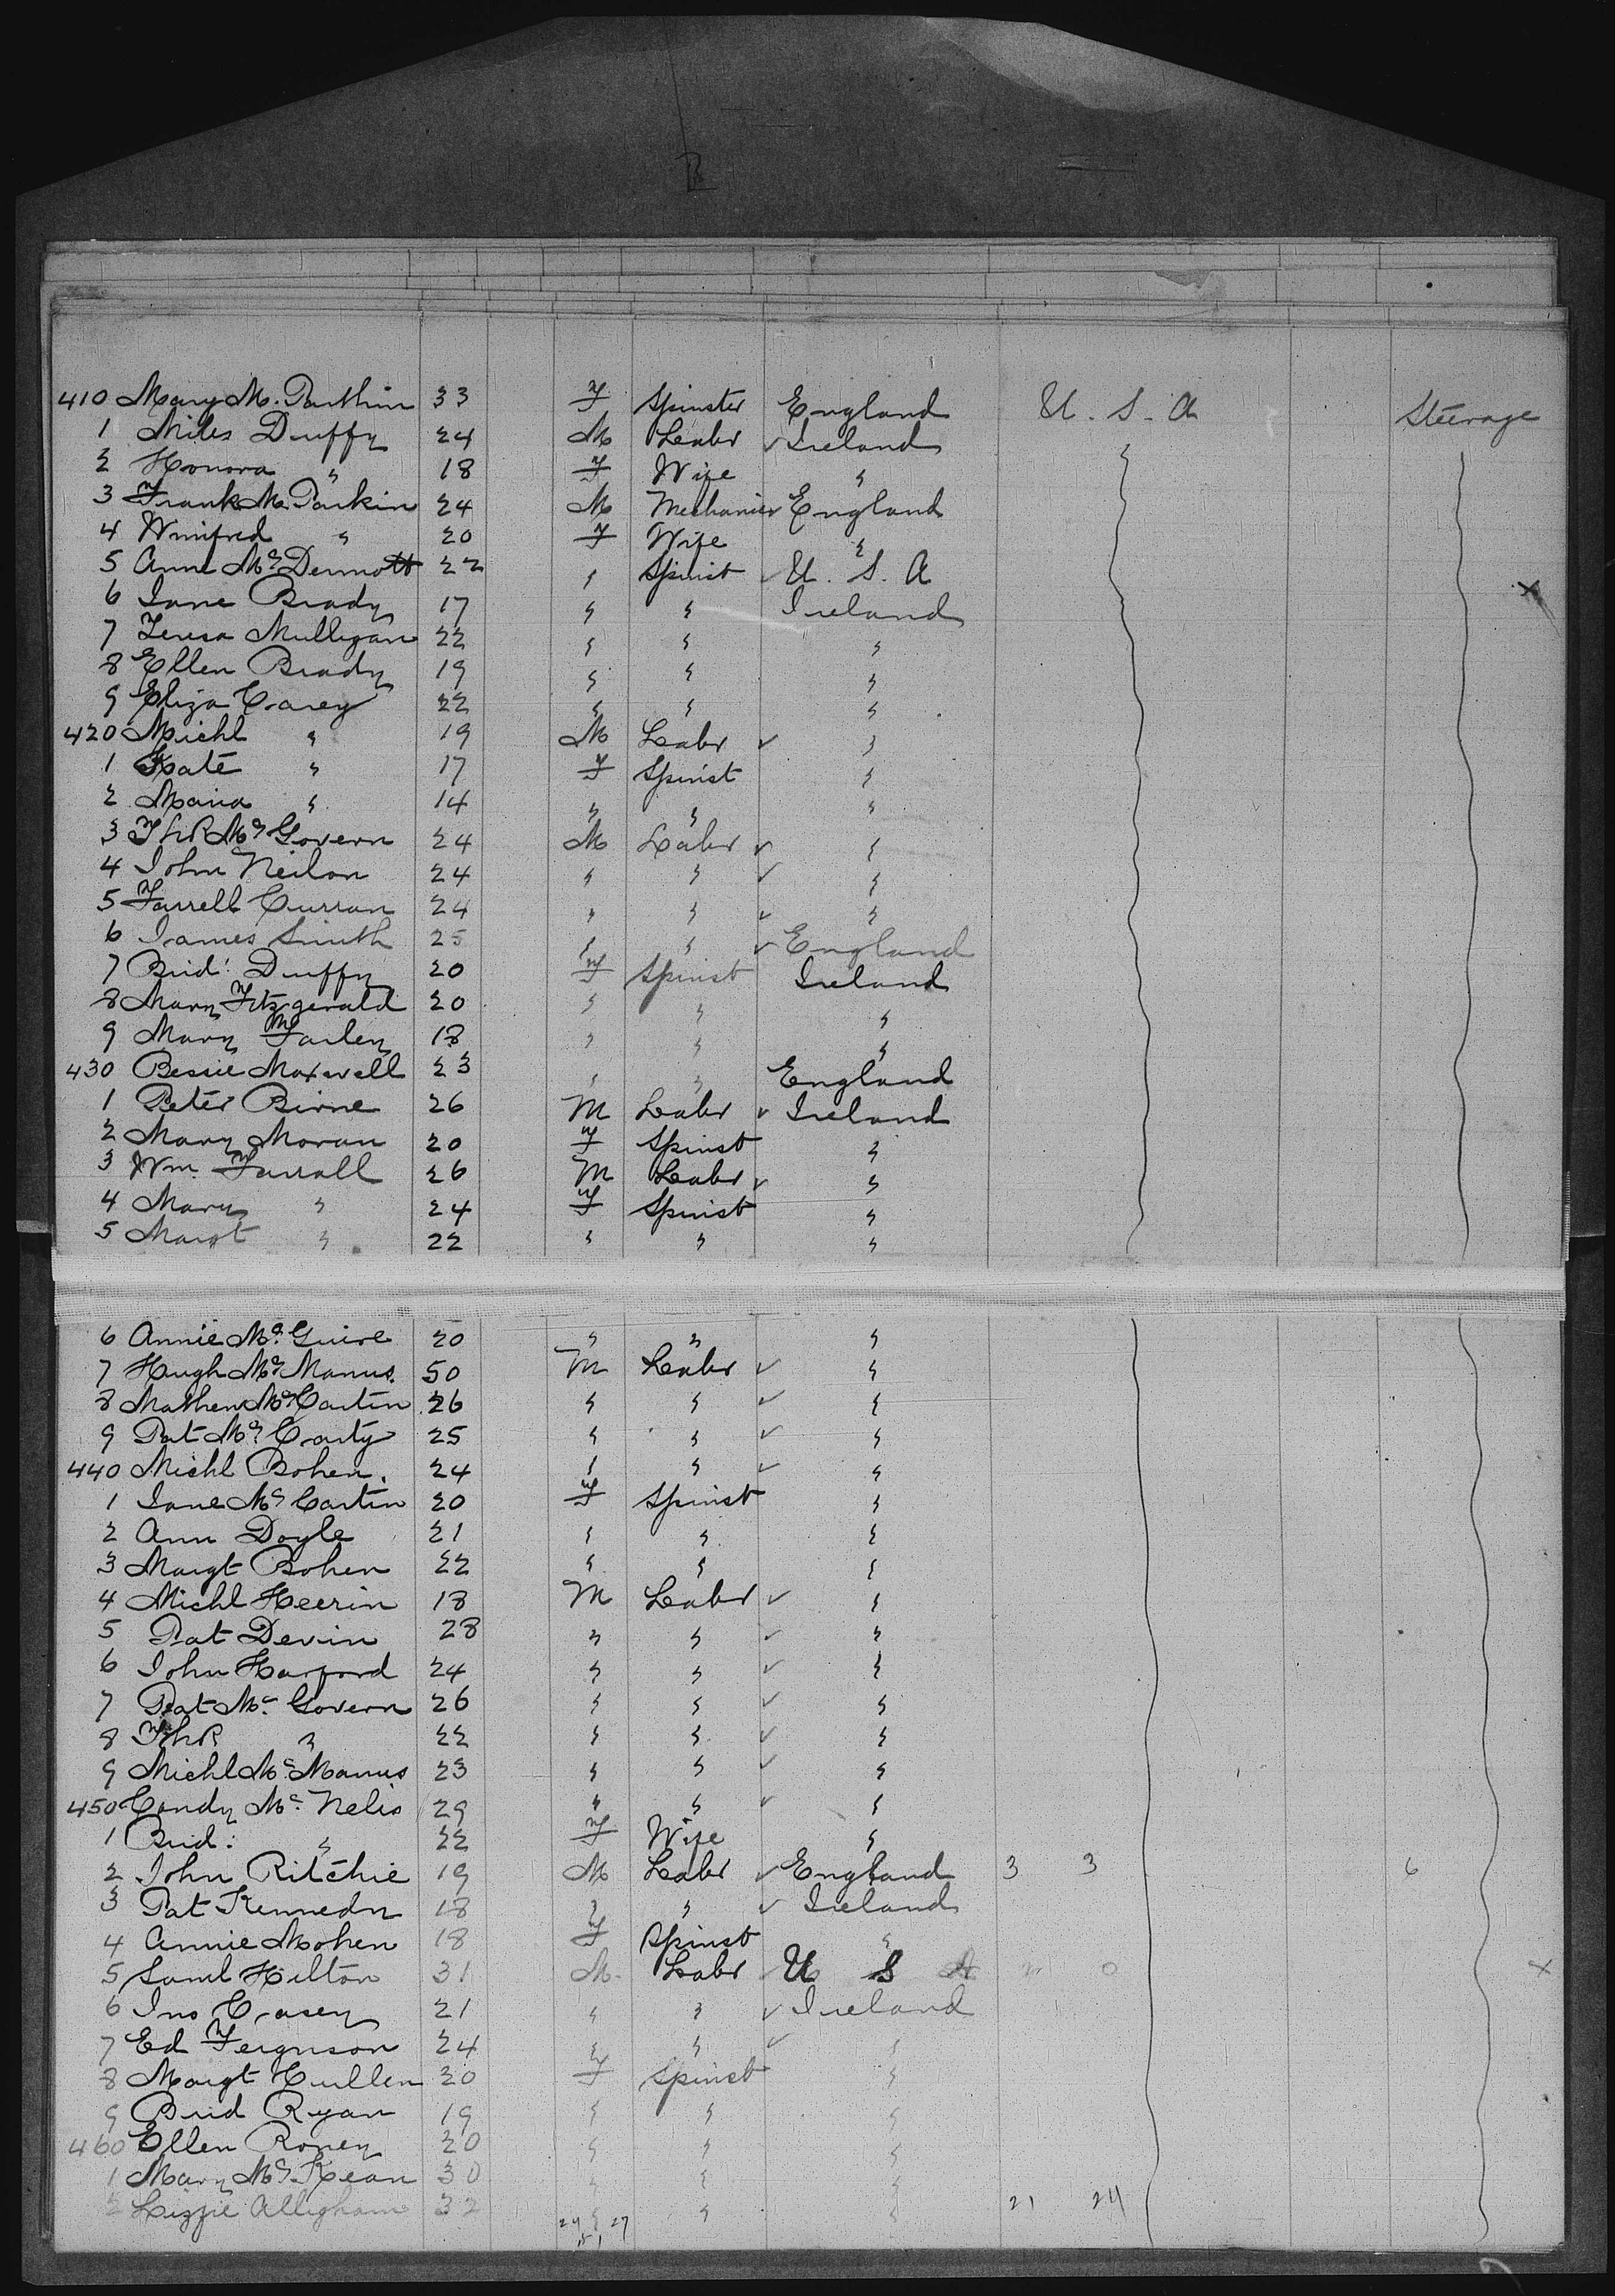 410 Mary M. Parthin 33 F Spinster England U. S. A Steerage
1 Miles Duffy 24 M Labr ✓ Ireland "
2 Honora " 18 F Wife "
3 Frank M. Parkin 24 M Mechanic ✓ England
4 Winifred " 20 F Wife "
5 Anne McDermott 22 " Spinst ✓ U. S. A x
6 Jane Brady 17 " " Ireland
7 Teresa Mulligan 22 " " "
8 Ellen Brady 19 " " "
9 Eliza Carey 22 " " "
420 Michl " 19 M Labr ✓ "
1 Kate " 17 F Spinst "
2 Maria " 14 " " "
3 ThR McGovern 24 M Labr ✓ "
4 John Neilon 24 " " ✓ "
5 Farrell Curran 24 " " ✓ "
6 James Smith 25 " " ✓ England
7 Brid: Duffy 20 F Spinst Ireland
8 Mary Fitzgerald 20 " " "
9 Mary Farley 18 " " "
430 Bessie Maxwell 23 " " England
1 Peter Birne 26 M Labr ✓ Ireland
2 Mary Moran 20 F Spinst "
3 Wm. Farrall 26 M Labr ✓ "
4 Mary " 24 F Spinst "
5 Margt " 22 " " "
6 Annie McGuire 20 " " "
7 Hugh McManus. 50 M Labr ✓ "
8 Mathew McCartin 26 " " ✓ "
9 Pat McCarty 25 " " ✓ "
440 Michl Bohen. 24 " " ✓ "
1 Jane McCartin 20 F Spinst "
2 Ann Doyle 21 " " "
3 Margt Bohen 22 " " "
4 Michl Heerin 18 M Labr ✓ "
5 Pat Devin 28 " " ✓ "
6 John Harford 24 " " ✓ "
7 Pat McGovern 26 " " ✓ "
8 ThR " 22 " " ✓ "
9 Michl McManus 23 " " ✓ "
450 Condy McNelis 29 " " ✓ "
1 Brid: " 22 F Wife "
2 John Ritchie 19 M Labr ✓ England 3 3 6
3 Pat Kennedy 18 " " ✓ Ireland
4 Annie Mohen 18 F Spinst "
5 Saml Hilton 31 M Labr ✓ U S A 0 x
6 Jno Casey 21 " " ✓ Ireland
7 Ed Ferguson 24 " " ✓ "
8 Margt Cullen 20 F Spinst "
9 Brid Ryan 19 " " "
460 Ellen Roney 20 " " "
1 Mary McKean 30 " " "
2 Lizzie Alligham 32 " " " 21 24
24 27